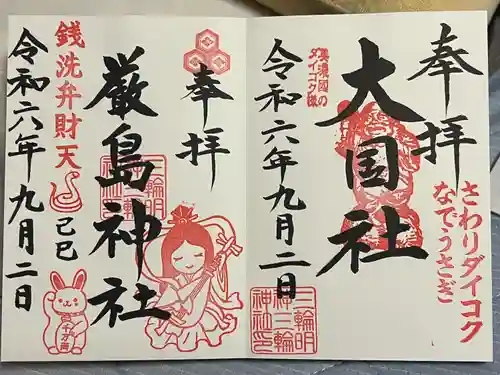 奉拝
さわりダイコク
なでうさぎ
大国社
美濃國の
ダイコク様
令和六年九月二日
三輪明
神三輪
神社印
奉拝
厳島神社
三輪明
銭洗弁財天
己巳
令和六年九月二日